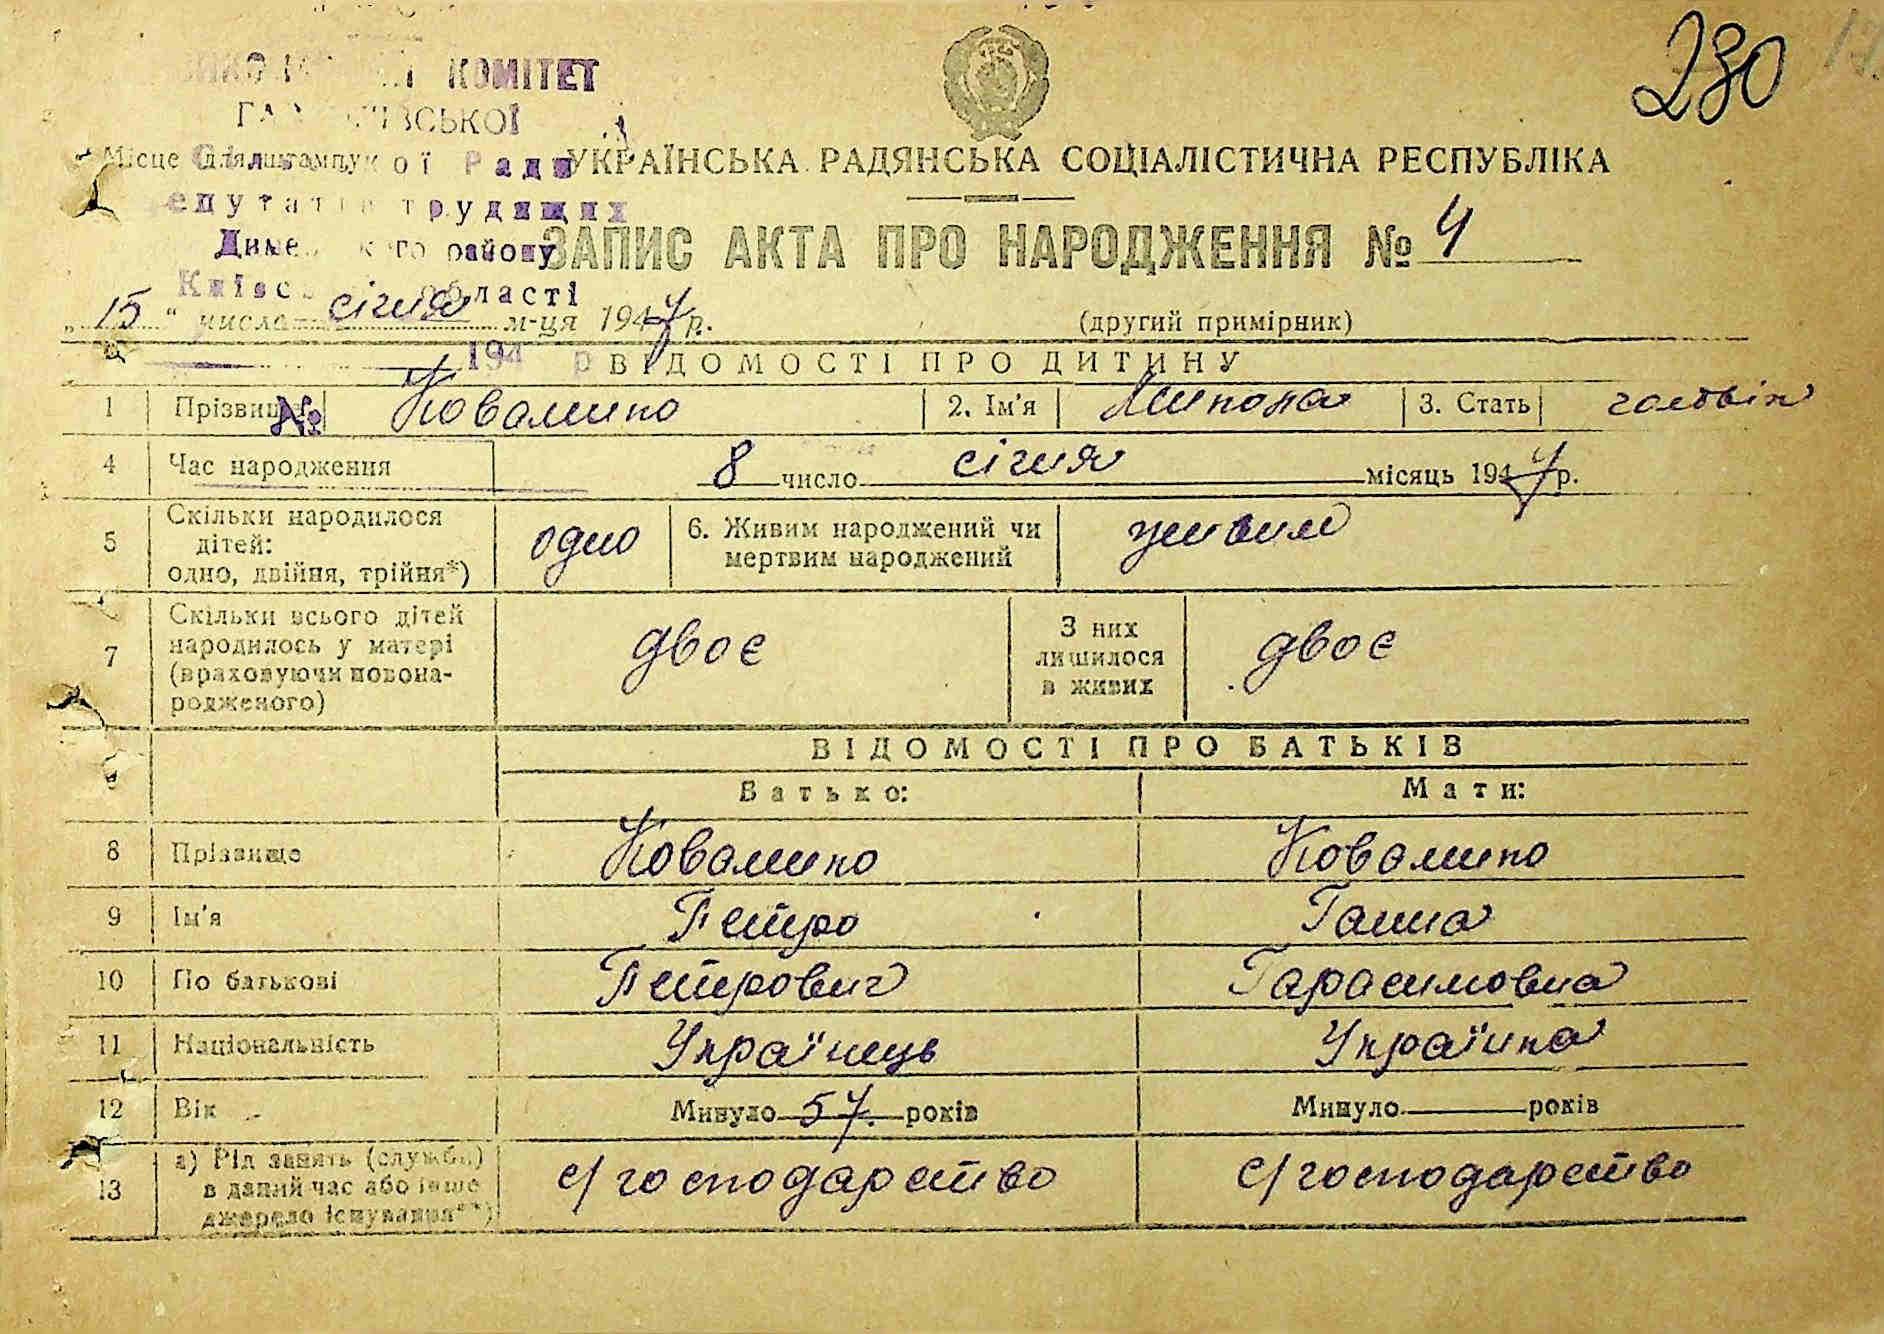 230
КОМІТЕТ
Місце для штампу
Ради
УКРАЇНСЬКА РАДЯНСЬКА СОЦІАЛІСТИЧНА РЕСПУБЛІКА
трудящих
району
ЗАПИС АКТА ПРО НАРОДЖЕННЯ № 4
області
„15“ числа січня м-ця 1947 р.
(другий примірник)
194 р
ВІДОМОСТІ ПРО ДИТИНУ
1 Прізвище № Ковалишо 2. Ім'я 3. Стать чоловік
4 Час народження 8 число січня місяць 1947 р.
5 Скільки народилося
дітей:
одно, двійня, трійня*)
одно
6. Живим народжений чи
мертвим народжений
живим
7 Скільки всього дітей
народилось у матері
(враховуючи новона-
родженого)
двоє
З них
лишилося
в живих
двоє
ВІДОМОСТІ ПРО БАТЬКІВ
Батько: Мати:
8 Прізвище Ковалишо Ковалишо
9 Ім'я Петро Ганна
10 По батькові Петрович Гарасимовна
11 Національність Українець Українка
12 Вік Минуло 57 років Минуло років
13 а) Рід занять (служби)
в даний час або інше
джерело існування**)
с/господарство с/господарство